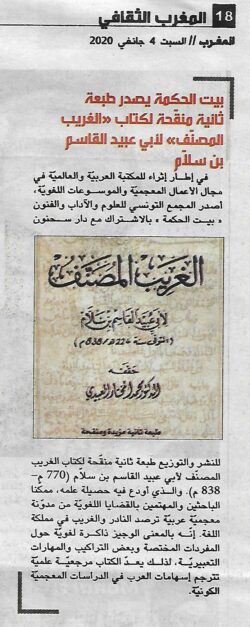 18 المغرب الثقافي
المغرب // السبت 4 جانفي 2020
بيت الحكمة يصدر طبعة
ثانية منقّحة لكتاب «الغريب
المصنّف» لأبي عبيد القاسم
بن سلاّم
في إطار إثراء للمكتبة العربيّة والعالميّة في
مجال الأعمال المعجميّة والموسوعات اللغويّة،
أصدر المجمع التونسي للعلوم والآداب والفنون
« بيت الحكمة » بالاشتراك مع دار سحنون
الغريب المصنف
لأبي عبيد القاسم بن سلام
(المتوفى سنة 224هـ/838م)
حققه
الدكتور محمد المختار العبيدي
طبعة ثانية مزيدة ومنقحة
للنشر والتوزيع طبعة ثانية منقّحة لكتاب الغريب
المصنّف لأبي عبيد القاسم بن سلاّم (770 م–
838 م). والذي أودع فيه حصيلة علمه، ممكنا
الباحثين والمهتمين بالقضايا اللغويّة من مدوّنة
معجميّة عربيّة ترصد النادر والغريب في مملكة
اللغة. إنّه بالمعنى الوجيز ذاكرة لغويّة حول
المفردات المختصة وبعض التراكيب والمهارات
التعبيريّة، لذلك يعدّ الكتاب مرجعيّة علميّة
تترجم إسهامات العرب في الدراسات المعجميّة
الكونيّة.